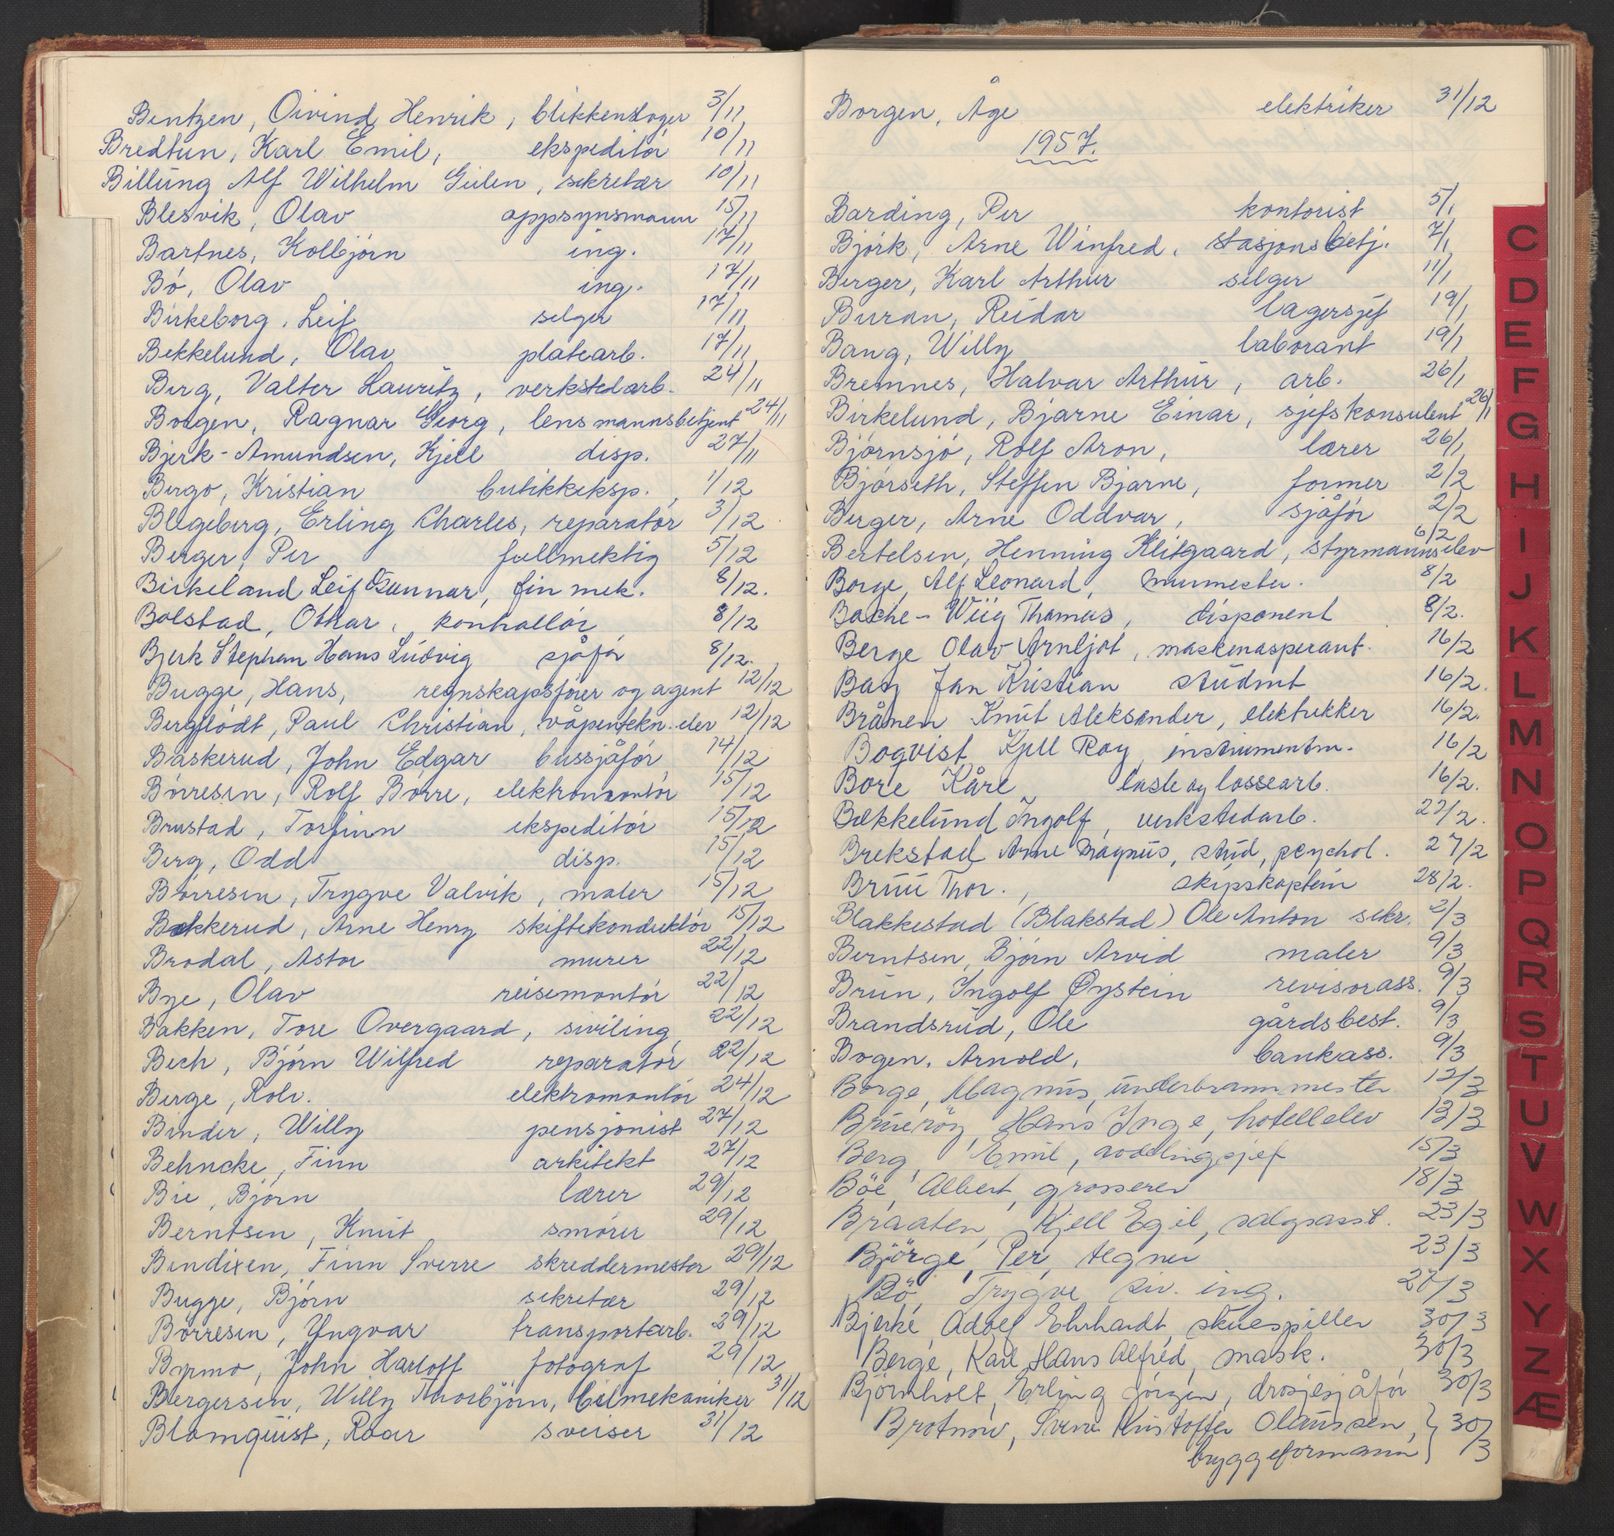 Bentzen, Oivind Henrik, blikkenslager 3/11
Bredtun, Karl Emil, ekspeditör 10/11
Billung Alf Wilhelm Geelen, sekretær 10/11
Blesvik, Olav oppsynsmann 15/11
Bartnes, Kolbjörn ing. 17/11
Bö, Olav ing. 17/11
Birkeborg, Leif selger 17/11
Bekkelund, Olav platearb. 17/11
Berg, Valter Lauritz, verkstedarb. 24/11
Borgen, Ragnar Georg, lensmannsbetjent 24/11
Bjerk-Amundsen, Kjell disp. 27/11
Bergo, Kristian butikkeksp. 1/12
Blegeberg, Erling Charles, reparatör 3/12
Berger, Per fullmektig 5/12
Birkeland Leif Gunnar, finmek. 8/12.
Bolstad, Othar, kontrollör 8/12
Bjerk Stephan Hans Ludvig sjåför 8/12.
Bugge, Hans, regnskapsförer og agent 12/12
Berglödt, Paul Christian, våpentekn. elev 12/12
Baskerud, John Edgar bussjåför 14/12
Börresen, Rolf Börre, elektromontör 15/12
Brustad, Torfinn ekspeditör 15/12
Berg, Odd disp. 15/12
Börresen, Trygve Valvik, maler 15/12
Bakkerud, Arne Henry skiftekonduktör 15/12
Brodal, Astor murer 22/12
Bye, Olav reisemontör 22/12
Bakken, Tore Overgaard, siviling. 22/12
Bech, Björn Wilfred reparatör 22/12
Berge, Rolv. elektromontör 24/12
Binder, Willy pensjonist 27/12
Behncke, Finn arkitekt 27/12
Bie, Björn lærer 29/12
Berntsen, Knut smörer 29/12
Bendixen, Finn Sverre skreddermester 29/12
Bugge, Björn sekretær 29/12
Börresen, Yngvar transportarb. 29/12
Bymo, John Harloff fotograf 29/12
Bergersen, Willy Thorbjörn, bilmekaniker 31/12
Blomquist, Roar sveiser 31/12
Borgen, Åge elektriker 31/12
1957.
Barding, Per kontorist 5/1
Björk, Arne Winfred, stasjonsbetj. 7/1
Berger, Karl Arthur selger 11/1
Buran, Reidar lagersjef 19/1
Bang, Willy laborant 19/1
Bremnes, Halvar Arthur, arb. 26/1
Birkelund, Bjarne Einar, sjefskonsulent 26/1
Björnsjö, Rolf Aron, lærer 26/1
Björseth, Steffen Bjarne, former 2/2
Berger, Arne Oddvar, sjåför 2/2
Bertelsen, Henning Klitgaard, styrmannselev 6/2
Borge, Alf Leonard, murmester. 8/2
Bache-Wiig Thomas, disponent 8/2.
Berge Olav Arnljot, maskinaspirant. 16/2
Bay Jan Kristian student 16/2.
Brånen Knut Aleksander, elektrikker 16/2.
Boqvist, Kjell Roy, instrumentm. 16/2
Bore Kåre laste og lossearb. 16/2.
Bækkelund Ingolf, verkstedarb. 22/2.
Brekstad Arne Magnus, stud, psychol. 27/2
Bruu Thor., skipskaptein 28/2.
Blakkestad (Blakstad) Ole Anton sekr. 2/3
Berntsen, Björn Arvid maler 9/3
Brun, Ingolf Øystein revisorass. 9/3
Brandsrud, Ole gårdsbest. 9/3
Bogen, Arnold, bankass. 9/3
Borge, Magnus, underbrannmester 12/3
Brueröy, Hans Inge, hotellelev 13/3
Berg, Emil, avdelingsjef 15/3
Böe, Albert, grosserer 18/3
Braaten, Kjell Egil, salgsasst. 23/3
Björge, Per, tegner 23/3
Bö Trygve siv. ing. 27/3
Bjerke, Adolf Ehrhardt, skuespiller 30/3
Berge, Karl Hans Alfred, mask. 30/3
Björnholt, Erling Jörgen, drosjesjåför 30/3
Brotnow, Svein Kristoffer Olaussen, 30/3
byggeformann
C
D
E
F
G
H
I
J
K
L
M
N
O
P
Q
R
S
T
U
V
W
X
Y
Z
Æ